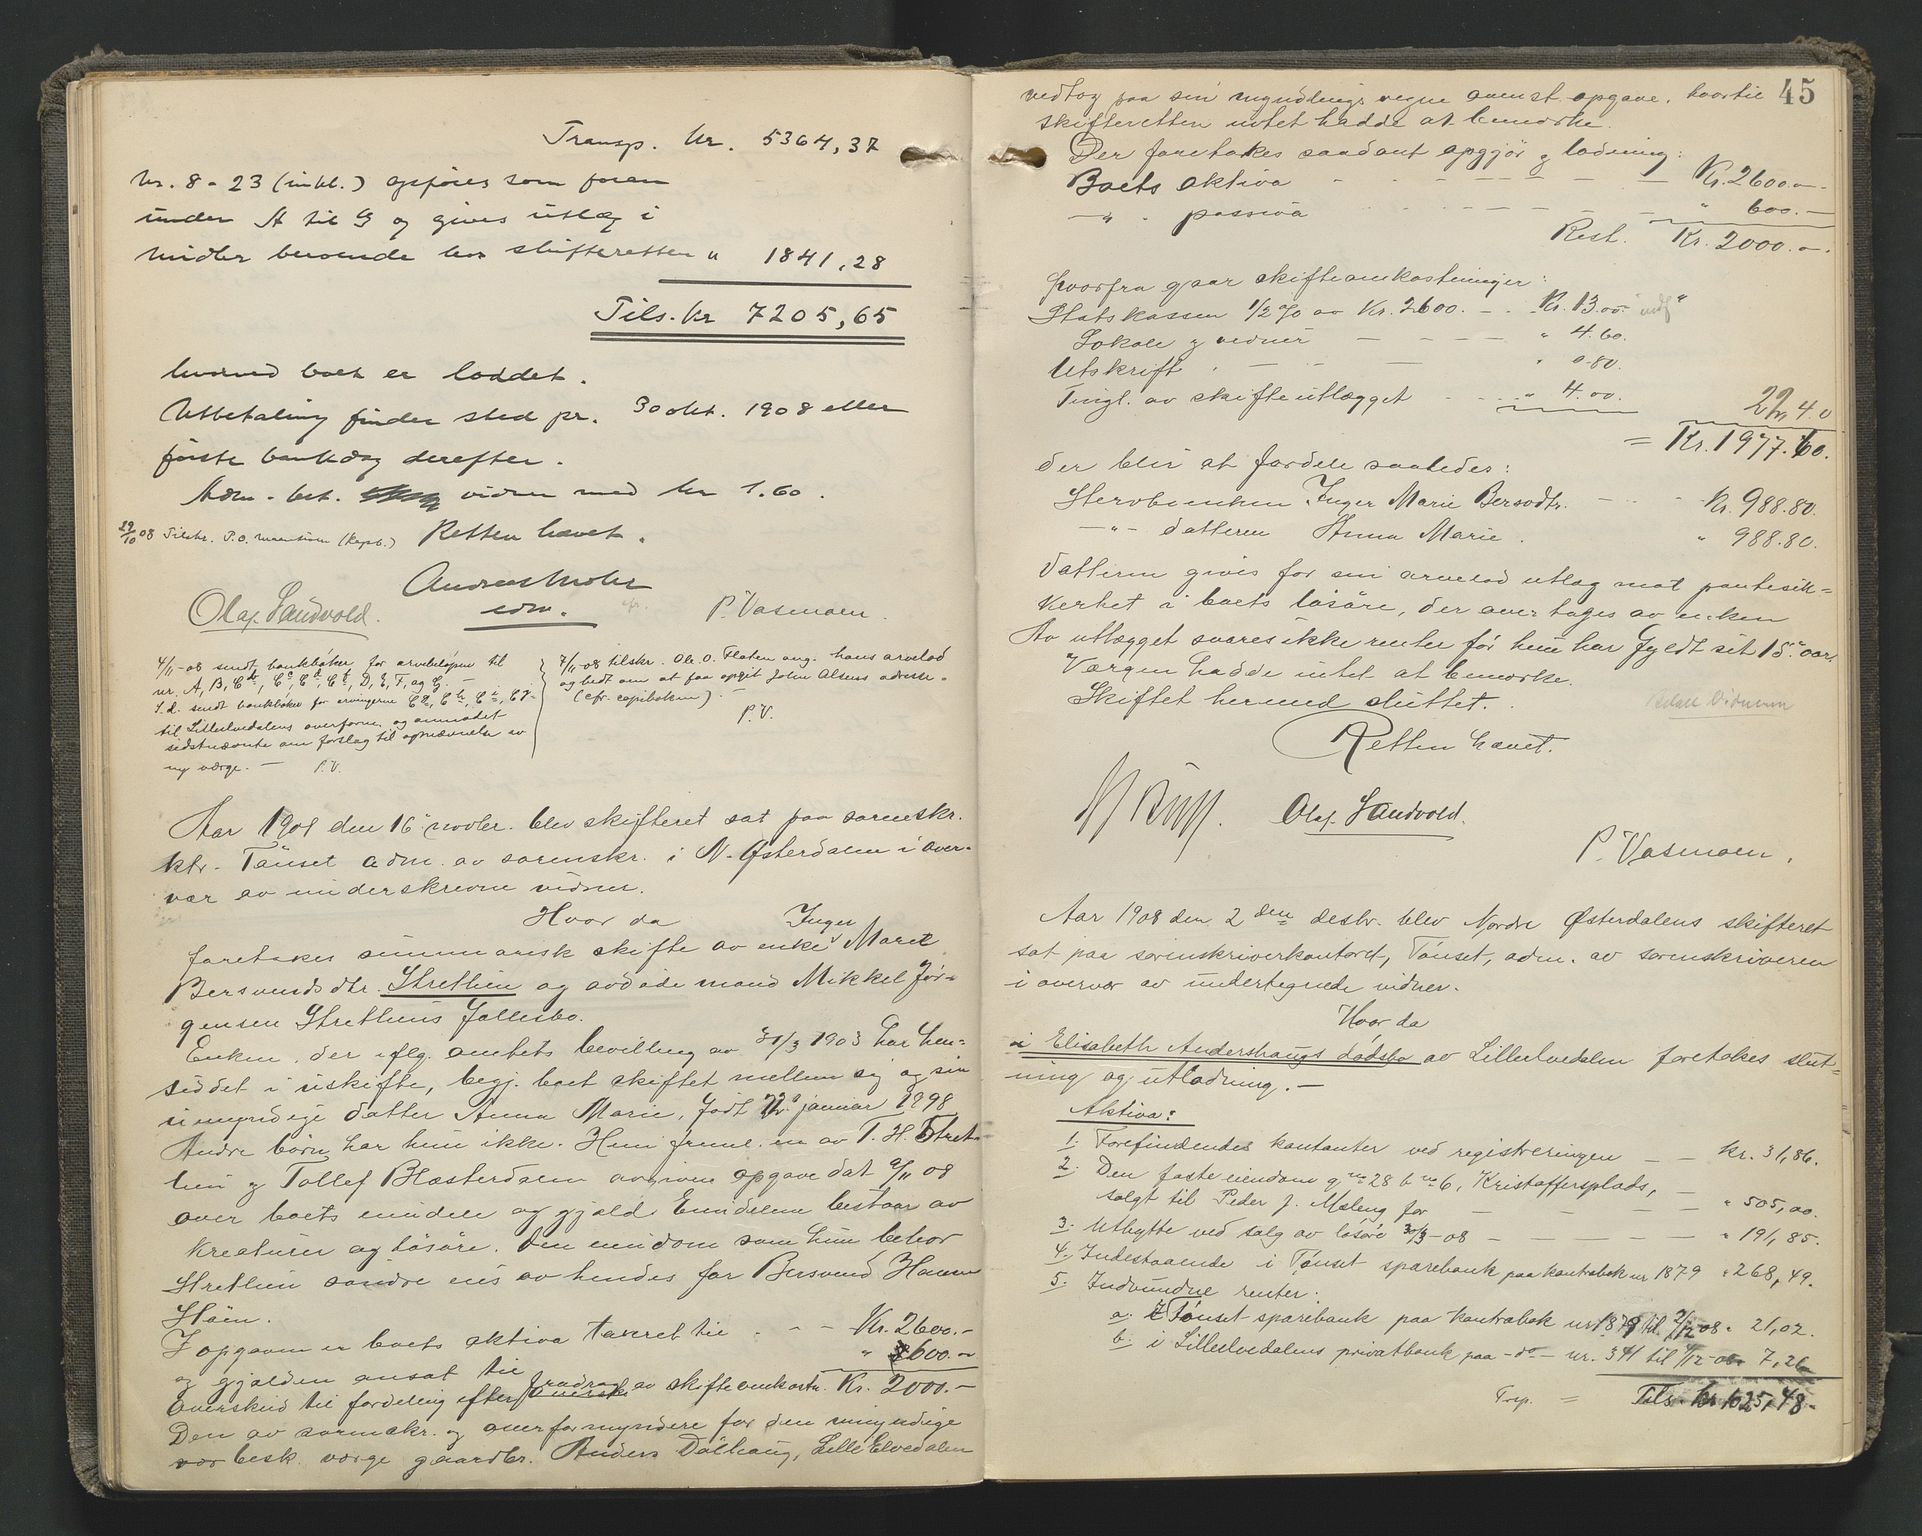 Transp. kr. 5364,37
Nr. 8-23 (inkl.) opføres som foran
under A til G og gives utlæg i
midler beroende hos skifteretten " 1841,28
Tils. kr 7205,65
hvormed boet er loddet.
Utbetaling finder sted pr. 30 okt. 1908 eller
første bankdag derefter.
Adm. bet. vidner med kr 1.60.
29/10 08 Tilskr. P.O. (Kopb.) Retten hævet.
Andreas Mohr
edm.
Olaf Sandvold. P. Vasmoen.
4/11-08 sendt bankbøker for arvebeløpene til
nr. A, B, C, D, E, F, og G. —
S.d. sendt bankbøker for arvingerne
til Lilleelvedalens overform. og anmodet
sidstnævnte om forslag til opnævnelse av
ny værge. — P.V.
7/11-08 tilskr. Ole O. Floten ang. hans arvelod
og bedt om at faa opgit John Olsens adresse.
(cfr. copiboken). —
P.V.
Aar 1908 den 16. novbr. blev skifteret sat paa sorenskr.
ktr. Tönset adm. av sorenskr. i N. Østerdalen i over-
vær av underskrevne vidner.
Hvor da
foretakes summarisk skifte av enke Inger Marie
Bersvendsdtr. Strethien og avdøde mand Mikkel Jör-
gensen Strethiens fællesbo.
Enken, der iflg. amtets bevilling av 31/3 1903 har hen-
siddet i uskifte, begj. boet skiftet mellem sig og sin
umyndige datter Anna Marie, født januar 1898
Andre börn har hun ikke. Hun freml. en av T. H. Stret-
hien og Tollef Blæsterdalen avgiven opgave dat 9/11 08
over boets eiendele og gjæld. Eiendelene bestaar av
kreaturer og lösöre. Den eiendom som hun bebor
Strethien söndre eies av hendes far Bersvend Hansen
Höen.
I opgaven er boets aktiva taxeret til . - - Kr. 2600.-
og gjælden ansat til " 600.-
Overskud til fordeling efter fradrag av skifteomkostn. Kr. 2000.-
Den av sorenskr. og overformyndere for den umyndige
besk. værge gaardbr. Anders Dölhaug, Lille Elvedalen
45
vedtog paa sin myndlings vegne ovenst. opgave. hvortil
skifteretten intet hadde at bemerke.
Der foretakes saadant opgjör og lodning:
Boets aktiva - - - Kr. 2600.-
-"- passiva - - - " 600.-
Rest. Kr. 2000.-
hvorfra gaar skifteomkostninger:
Statskassen 1/2 % av Kr. 2600. - . Kr. 13.00
Lokale og vidner - - - " 4.60.
Utskrift - - - " 0.80.
Tingl. av skifteutlægget - - " 4.00. 22,40
= Kr. 1977.60.
der blir at fordele saaledes:
Stervboenken Inger Marie Bersvdtr. - - Kr. 988.80.
-"- datteren Anna Marie . " 988.80.
Datteren gives for sin arvelod utlæg mot pantesik-
kerhet i boets lösöre, der overtages av enken
Av utlægget svares ikke renter för hun har fyldt sit 15de aar.
Værgen hadde intet at bemerke.
Skiftet hermed sluttet.
Retten hævet.
Olaf Sandvold.
P. Vasmoen.
Aar 1908 den 2den desbr. blev Nordre Østerdalens skifteret
sat paa sorenskriverkontoret, Tönset, adm. av sorenskriveren
i overvær av undertegnede vidner.
Hvor da
i Elisabeth Andershaugs dödsbo av Lilleelvedalen foretakes slut-
ning og utlodning. —
Aktiva:
1. Forefindendes kontanter ved registreringen - - Kr. 31,86.
2. Den faste eiendom gno 28 bno 6, Kristoffersplads,
solgt til Peder J. Moleng for - - - " 505,00.
3. Utbytte ved salg av lösöre 30/3-08 - - - " 191,85.
4. Indestaaende i Tönset sparebank paa kontrabok nr 1879 " 268,49.
5. Indvundne renter:
a. i Tönset sparebank paa kontrabok nr 1879 til 2/12-08 " 21,02.
b. i Lilleelvedalens privatbank paa -do- nr. 341 til 2/12-08 " 7,26
Trsp. = Tils. kr 1025,48.